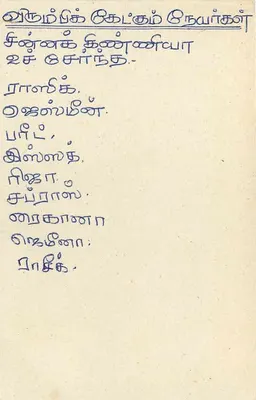 விரும்பிக் கேட்கும் நேயர்கள்
சின்னக் கிண்ணியா
உச் சேர்ந்த.-
ராஸிக்.
ஜெஸ்மீன்.
பரீட்.
இஸ்ஸத்.
ரிஜா.
சப்ராஸ்.
ரைகானா
ஜெமீனா.
ராசீக்.